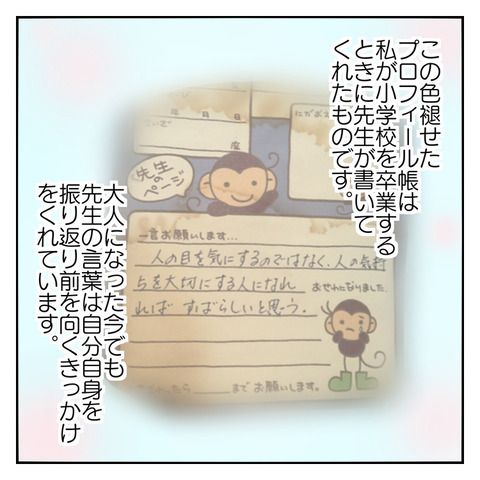 この色褪せた
プロフィール帳は
私が小学校を卒業する
ときに先生が書いて
くれたものです。
先生の
ページ
一言お願いします…
人の目を気にするのではなく、人の気持
ちを大切にする人になれ
れば すばらしいと思う。
おせわになりました。
まで お願いします。
大人になった今でも
先生の言葉は自分自身を
振り返り前を向くきっかけ
をくれています。